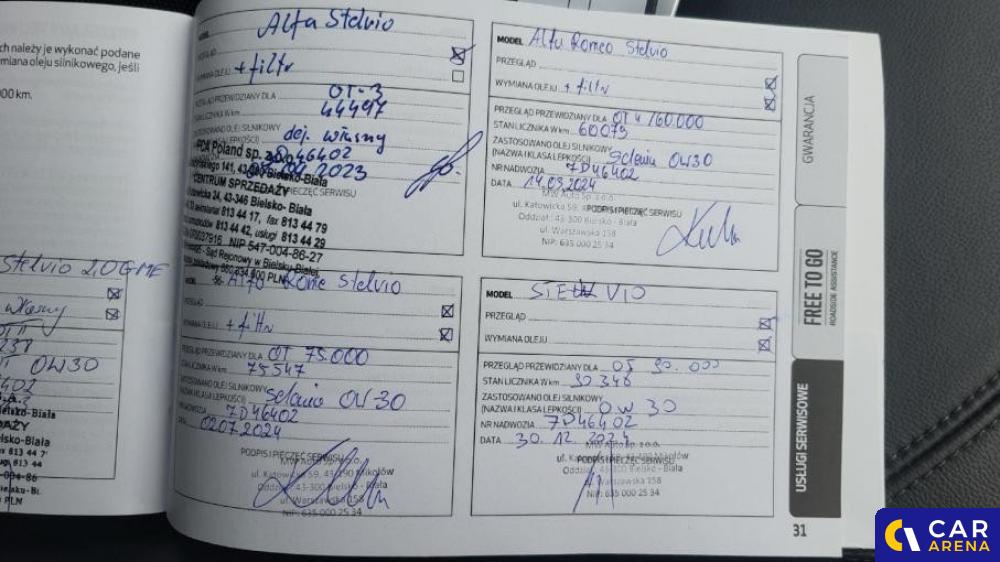 ch należy je wykonać podane
miana oleju silnikowego, jeśli
000 km.
Stelvio 2.0 GME
własny
0W30
Alfa Stelvio
WYMIANA OLEJU + filtr
PRZEGLĄD PRZEWIDZIANY DLA OT-3
44497
dej. własny
7D46402
2023
PIECZĘĆ SERWISU
Poland sp. z o.o.
141, 43-300 Bielsko-Biała
CENTRUM SPRZEDAŻY
24, 43-346 Bielsko-Biała
813 44 17, fax 813 44 79
813 44 42, usługi 813 44 29
NIP 547-004-86-27
Sąd Rejonowy w Bielsku-Białej
MODEL Alfa Romeo Stelvio
PRZEGLĄD
WYMIANA OLEJU + filtr
PRZEGLĄD PRZEWIDZIANY DLA OT 4/60.000
STAN LICZNIKA W km 60075
ZASTOSOWANO OLEJ SILNIKOWY
(NAZWA I KLASA LEPKOŚCI) Selenia 0W30
NR NADWOZIA 7D46402
DATA 14.03.2024
MW Auto Sp. z o.o.
ul. Katowicka 59,
PODPIS I PIECZĘĆ SERWISU
Oddział: 43-300 Bielsko - Biała
ul. Warszawska 158
NIP: 635 000 25 34
Alfa Rome Stelvio
PRZEGLĄD
WYMIANA OLEJU + filtr
PRZEGLĄD PRZEWIDZIANY DLA OT 75.000
STAN LICZNIKA W km 75547
ZASTOSOWANO OLEJ SILNIKOWY
(NAZWA I KLASA LEPKOŚCI) Selenia 0W30
NR NADWOZIA 7D46402
DATA 02.07.2024
PODPIS I PIECZĘĆ SERWISU
MW Auto Sp. z o.o.
ul. Katowicka 59, 43-190 Mikołów
Oddział: 43-300 Bielsko - Biała
ul. Warszawska 158
NIP: 635 000 25 34
MODEL STELVIO
PRZEGLĄD
WYMIANA OLEJU
PRZEGLĄD PRZEWIDZIANY DLA 05 90.000
STAN LICZNIKA W km 90.346
ZASTOSOWANO OLEJ SILNIKOWY
(NAZWA I KLASA LEPKOŚCI) 0W30
NR NADWOZIA 7D46402
DATA 30.12.2024
MW Auto Sp. z o.o.
PODPIS I PIECZĘĆ SERWISU
Oddział: 43-300 Bielsko - Biała
ul. Warszawska 158
NIP: 635 000 25 34
GWARANCJA
FREE TO GO
ROADSIDE ASSISTANCE
USŁUGI SERWISOWE
31
CAR
ARENA